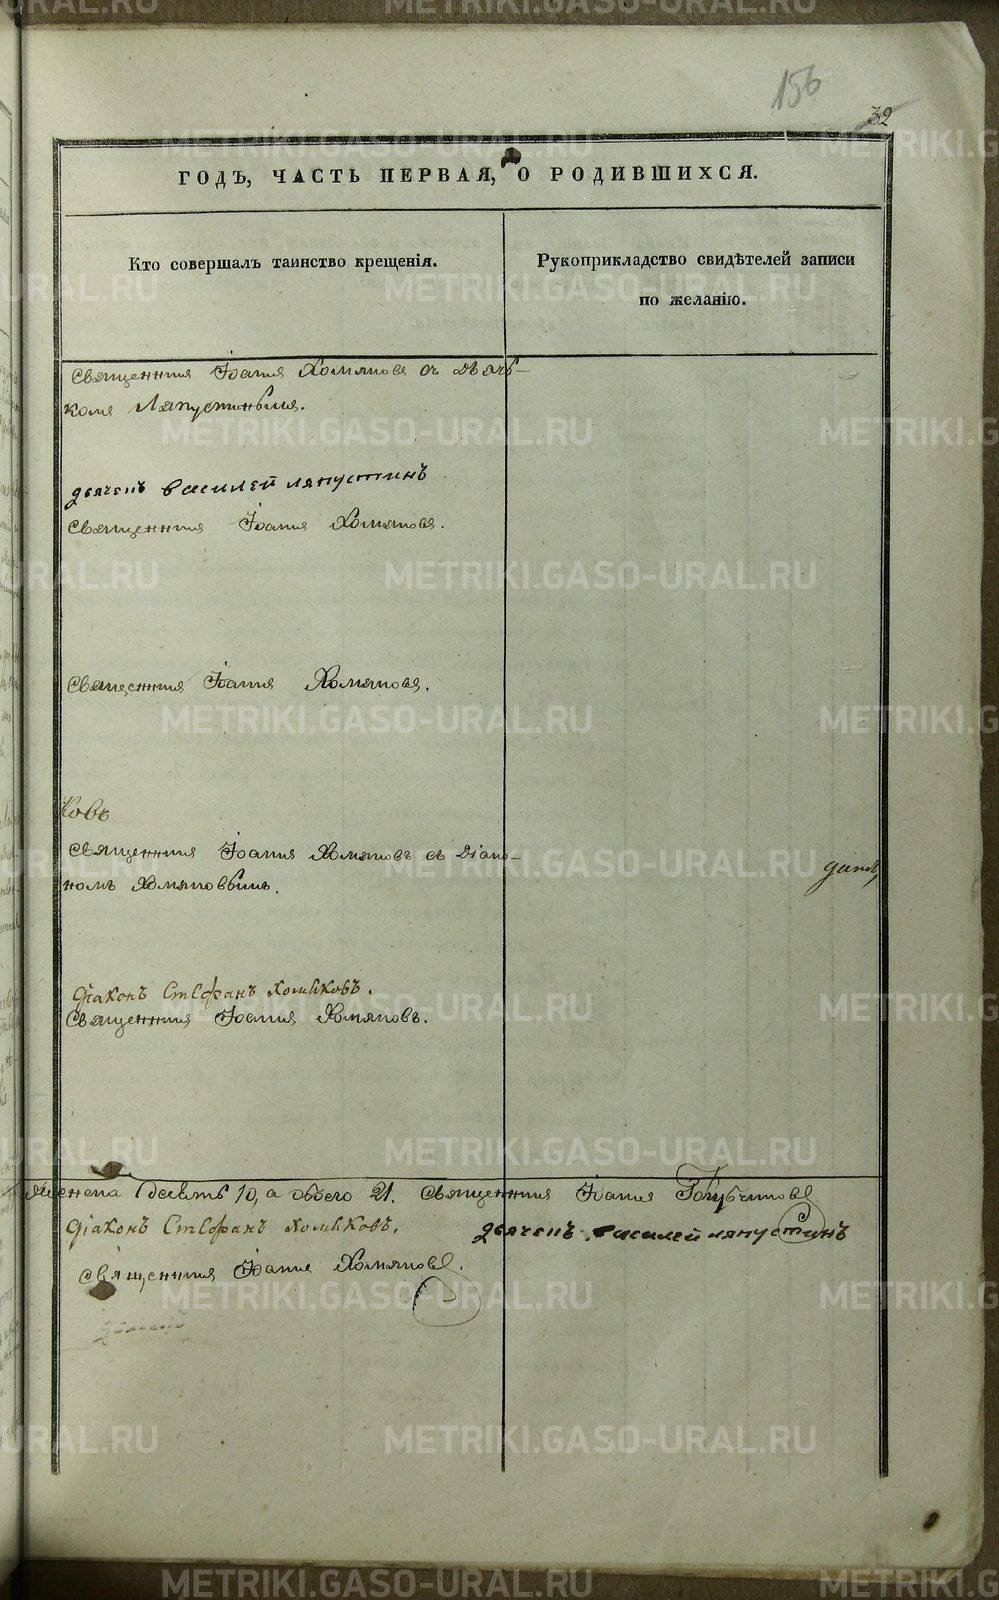 156
32
ГОДЪ, ЧАСТЬ ПЕРВАЯ, О РОДИВШИХСЯ.
Кто совершалъ таинство крещенія.
Рукоприкладство свидѣтелей записи
по желанію.
Священникъ Іоаннъ Хомяковъ съ дьяч-
комъ Ляпустинымъ.
дьячекъ василей ляпустинъ
Священникъ Іоаннъ Хомяковъ.
Священникъ Іоаннъ Хомяковъ.
ковъ
Священникъ Іоаннъ Хомяковъ съ діако-
номъ Хомяковымъ.
діаконъ Стефанъ Хомяковъ.
Священникъ Іоаннъ Хомяковъ.
10, а обоего 21. Священникъ Іоаннъ
діаконъ Стефанъ Хомяковъ. дьячекъ василей ляпустинъ
священникъ Іоаннъ Хомяковъ.
METRIKI.GASO-URAL.RU